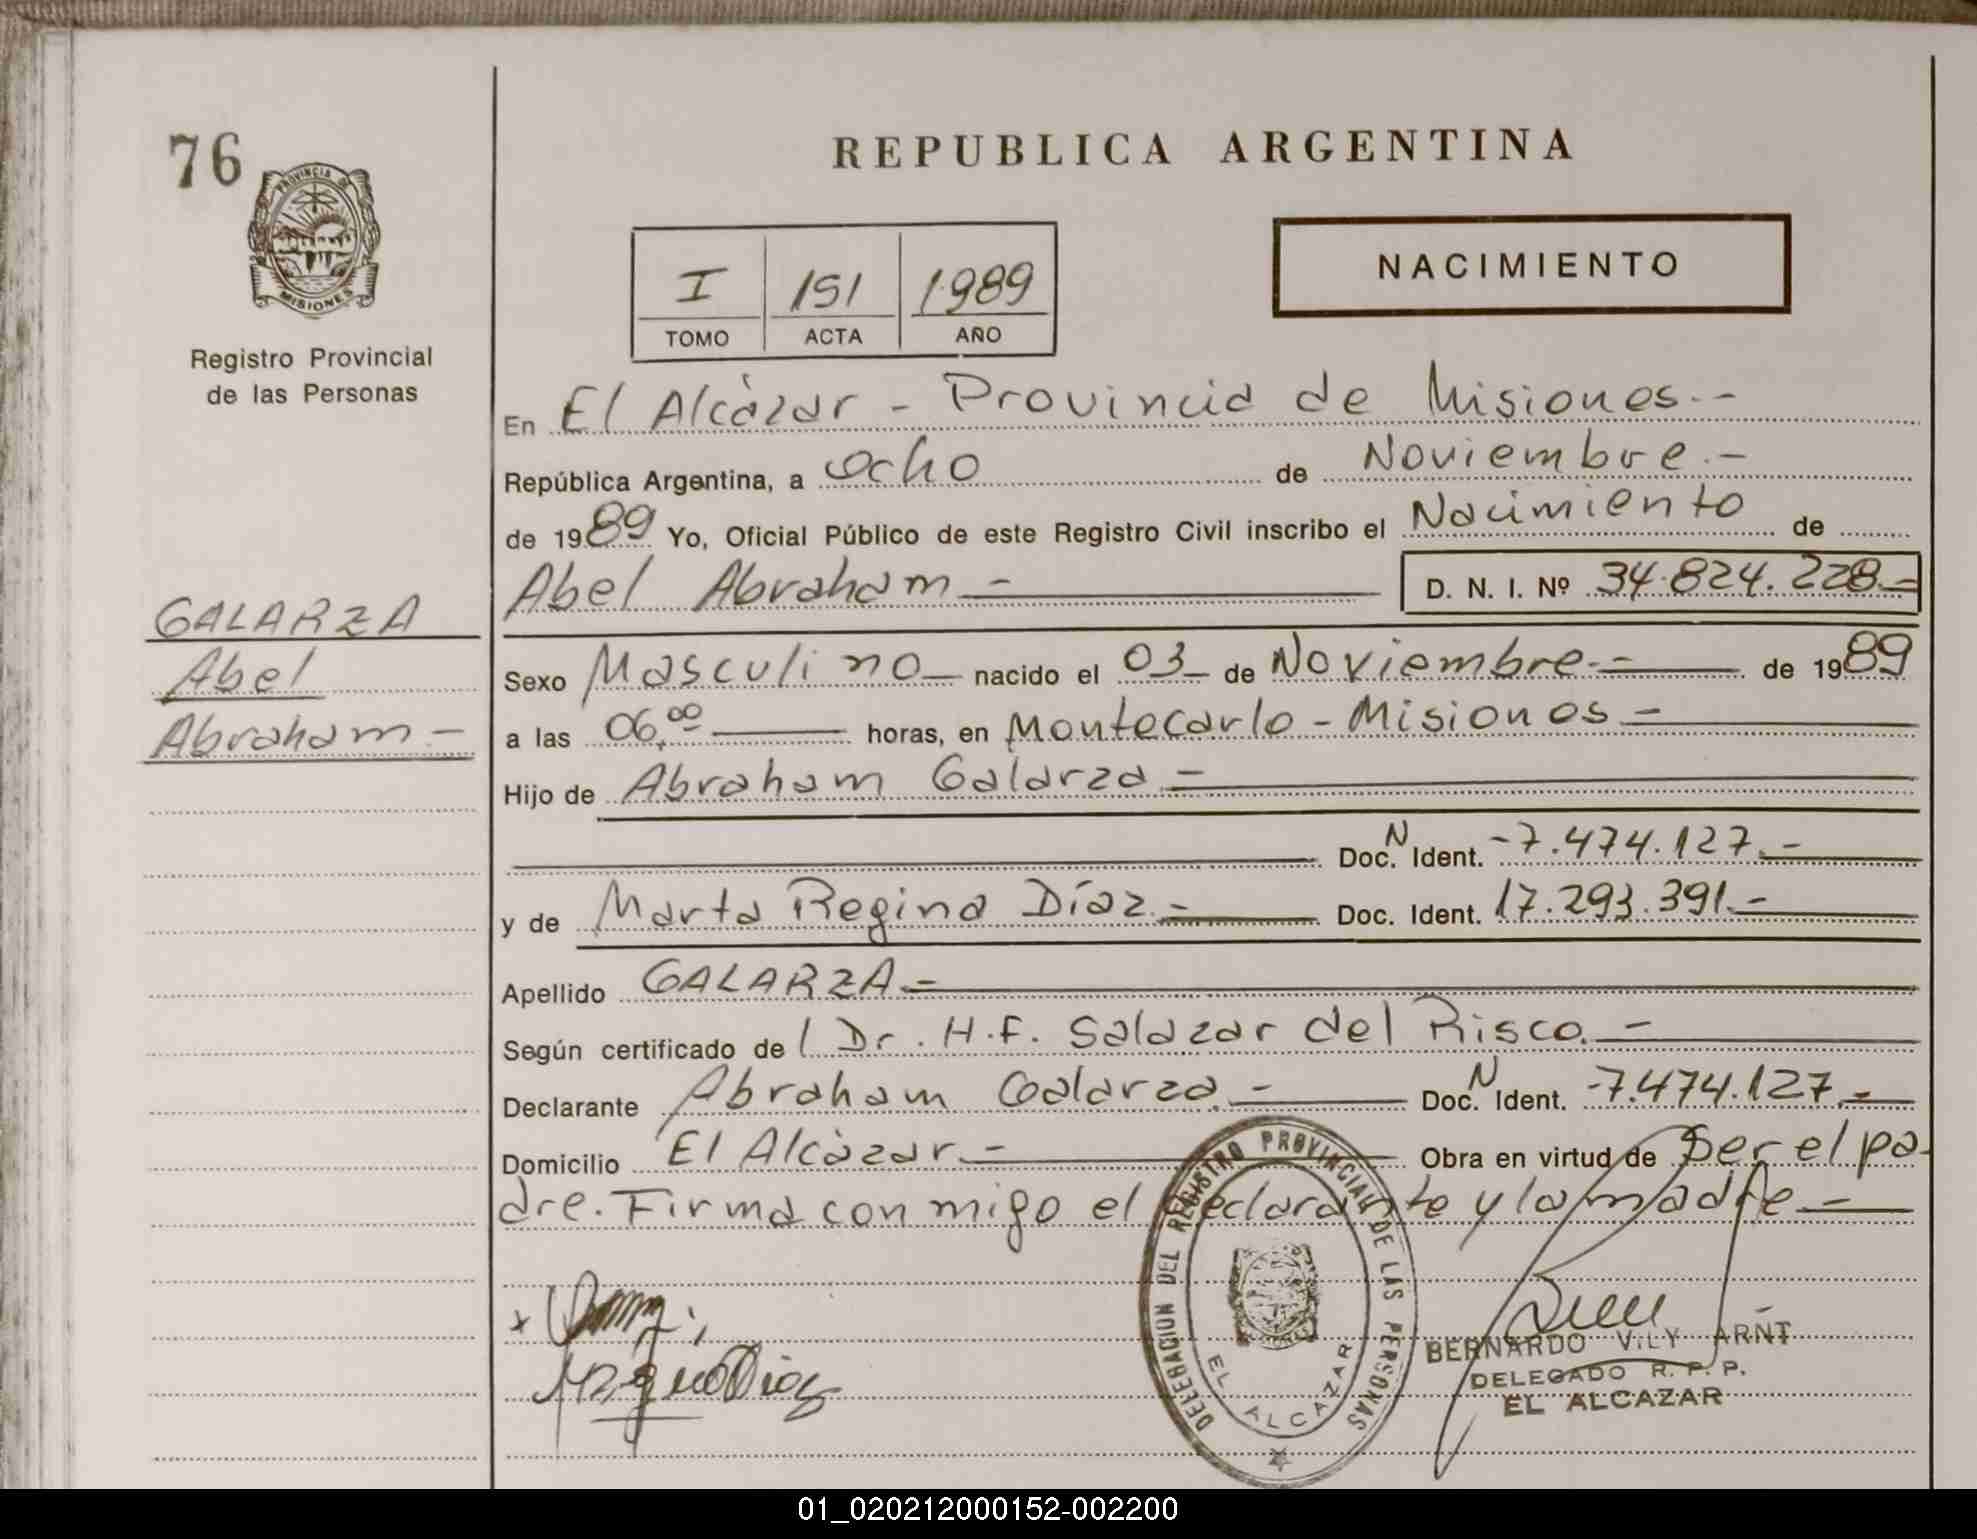 76
REPUBLICA ARGENTINA
PROVINCIA DE
MISIONES
I 151 1989
TOMO ACTA AÑO
NACIMIENTO
Registro Provincial
de las Personas
En El Alcázar - Provincia de Misiones.-
República Argentina, a ocho de Noviembre.-
de 1989 Yo, Oficial Público de este Registro Civil inscribo el Nacimiento de
Abel Abraham - D. N. I. Nº 34.824.228.-
GALARZA
Abel
Abraham -
Sexo Masculino nacido el 03 de Noviembre.- de 1989
a las 06,00 horas, en Montecarlo - Misiones -
Hijo de Abraham Galarza.-
Doc. N Ident. -7.474.127.-
y de Marta Regina Díaz.- Doc. Ident. 17.293.391.-
Apellido GALARZA.-
Según certificado del Dr. H.F. Salazar del Risco.-
Declarante Abraham Galarza.- Doc. N Ident. -7.474.127.-
Domicilio El Alcázar.- Obra en virtud de Ser el pa-
dre. Firma con migo el declarante y la madre -
DELEGACION DEL REGISTRO PROVINCIAL DE LAS PERSONAS
EL ALCAZAR
BERNARDO VILY ARNT
DELEGADO R. P. P.
EL ALCAZAR
01_020212000152-002200